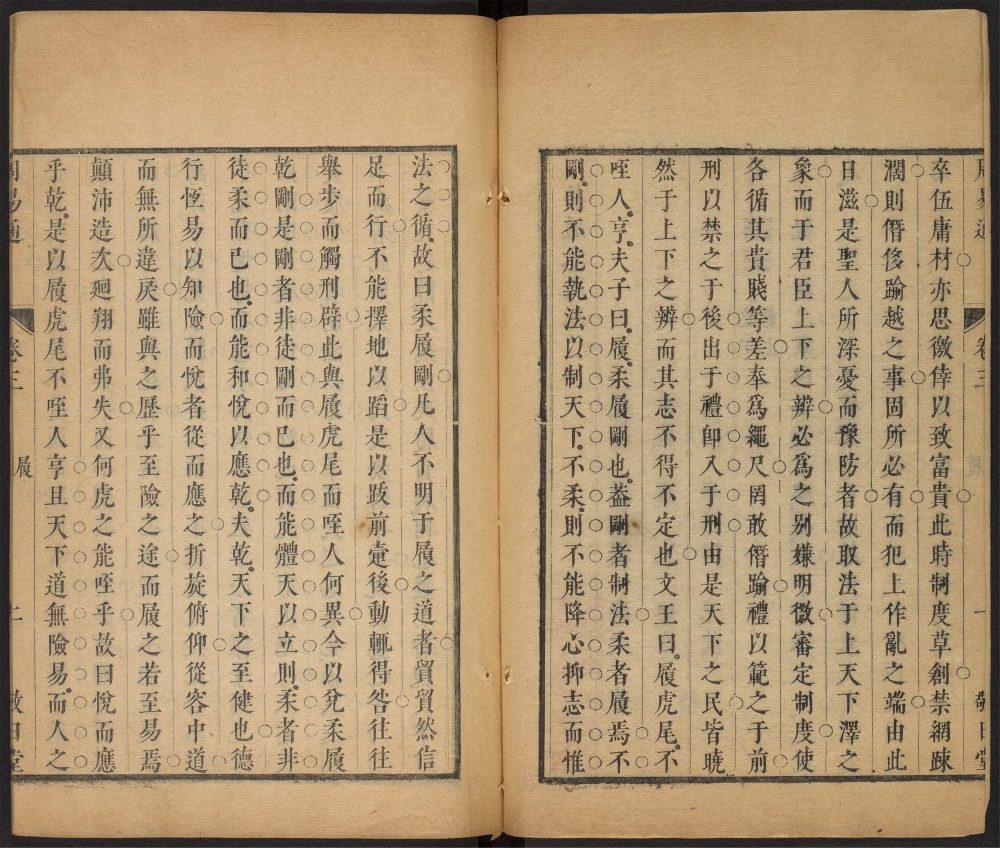 周易通 卷三 一 敬日堂
卒伍庸材亦思徼倖以致富貴此時制度草創禁網踈
濶則僭侈踰越之事固所必有而犯上作亂之端由此
日滋是聖人所深憂而豫防者故取法于上天下澤之
象而于君臣上下之辨必爲之别嫌明微審定制度使
各循其貴賤等差奉爲繩尺罔敢僭踰禮以範之于前
刑以禁之于後出于禮卽入于刑由是天下之民皆曉
然于上下之辨而其志不得不定也文王曰履虎尾不
咥人亨夫子曰履柔履剛也葢剛者制法柔者履焉不
剛則不能執法以制天下不柔則不能降心抑志而惟
法之循故曰柔履剛凡人不明于履之道者貿貿然信
足而行不能擇地以蹈是以跋前疐後動輒得咎往往
舉步而觸刑辟此與履虎尾而咥人何異今以兌柔履
乾剛是剛者非徒剛而已也而能體天以立則柔者非
徒柔而已也而能和悅以應乾夫乾天下之至健也德
行恆易以知險而悅者從而應之折旋俯仰從容中道
而無所違戾雖與之歷乎至險之途而履之若至易焉
顚沛造次廻翔而弗失又何虎之能咥乎故曰悅而應
乎乾是以履虎尾不咥人亨且天下道無險易而人之
周易通 卷三 履 二 敬日堂